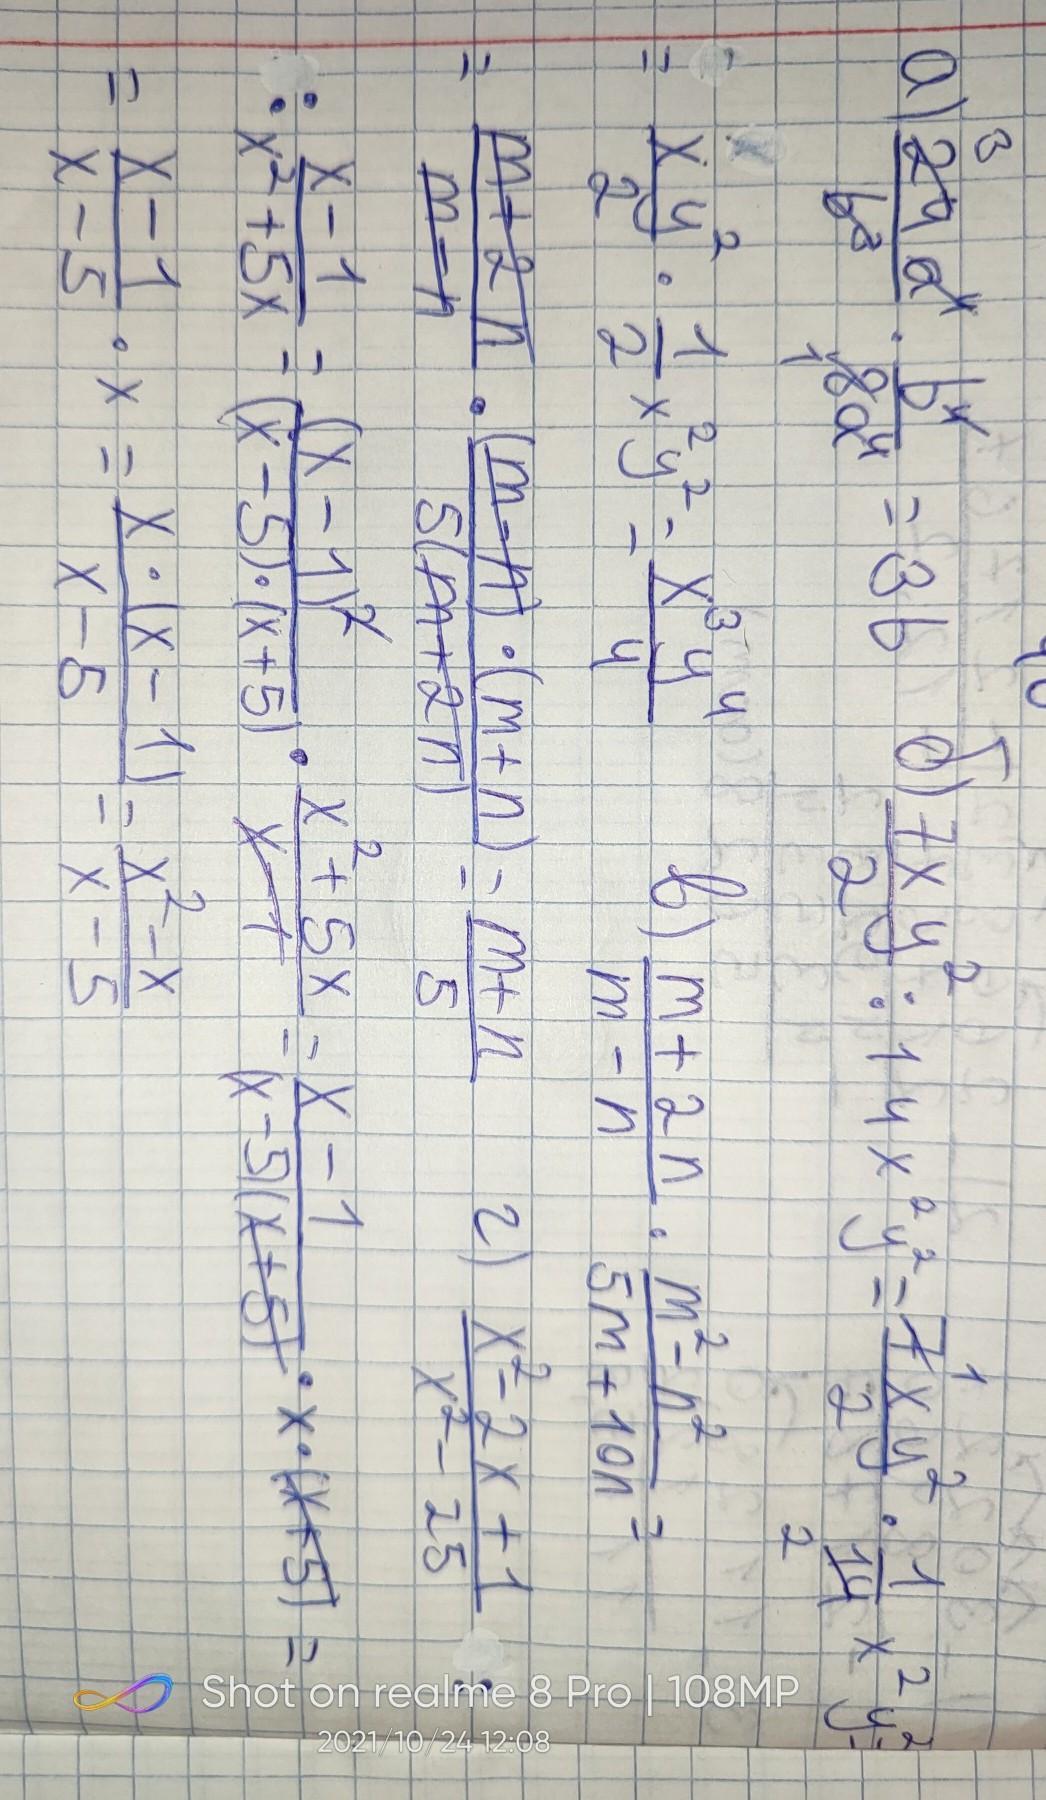 40
а) 24a⁴/b³ · b⁴/8a⁴ = 3b б) 7xy²/2 : 14x²y² = 7xy²/2 · 1/14 x²y² =
= xy²/2 · 1/2 x²y² = x³y⁴/4 в) m+2n/m-n · m²-n²/5m+10n =
= m+2n/m-n · (m-n)·(m+n)/5(m+2n) = m+n/5 г) x²-2x+1/x²-25 :
: x-1/x²+5x = (x-1)²/(x-5)·(x+5) · x²+5x/x-1 = x-1/(x-5)(x+5) · x·(x+5) =
= x-1/x-5 · x = x·(x-1)/x-5 = x²-x/x-5
Shot on realme 8 Pro | 108MP
2021/10/24 12:08